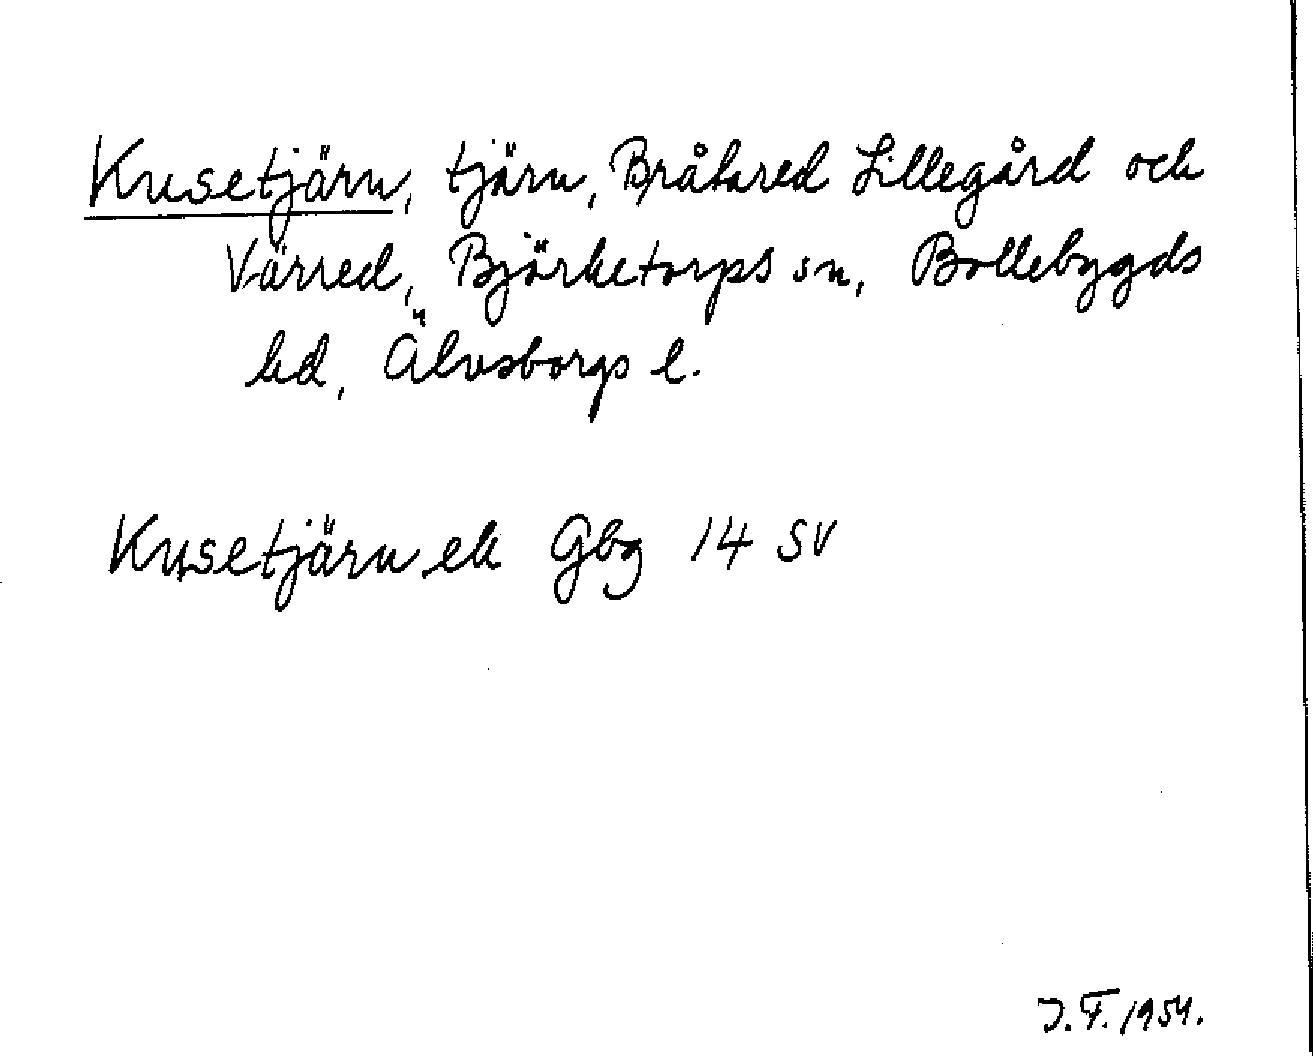 Kusetjärn, tjärn, Bråkared Lillegård och
Värred, Björketorps sn, Bollebygds
hd, Älvsborgs l.
Kusetjärn ek Gbg 14 SV
J.F. 1954.